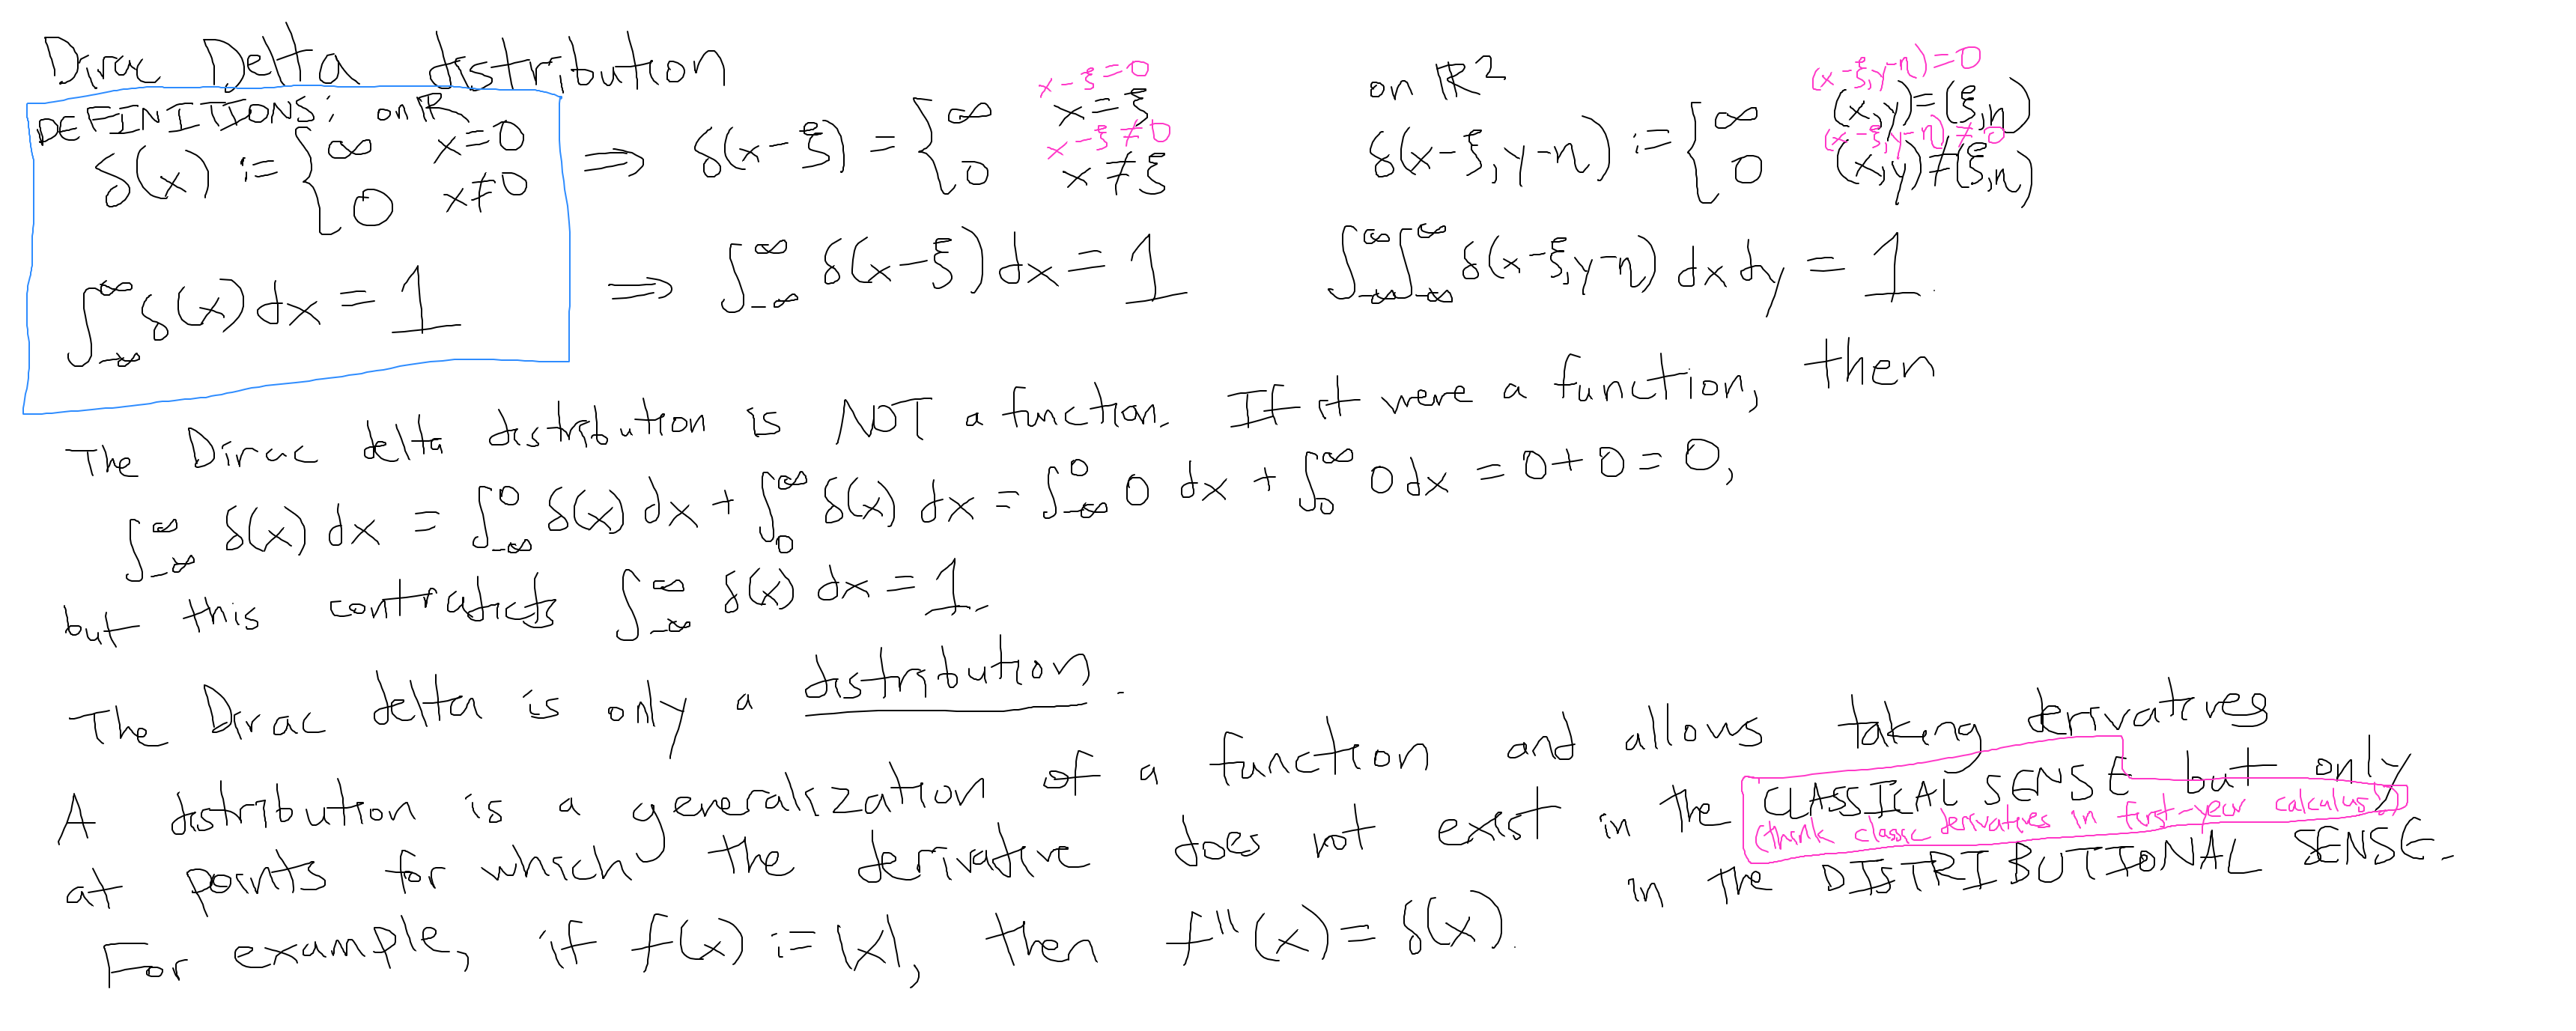 Dirac Delta distribution
DEFINITIONS: on ℝ
δ(x) := { ∞ x=0
0 x≠0
⟹ δ(x-ξ) = { ∞ x-ξ=0 x=ξ
0 x-ξ≠0 x≠ξ
on ℝ²
δ(x-ξ,y-η) := { ∞ (x-ξ,y-η)=0 (x,y)=(ξ,η)
0 (x-ξ,y-η)≠0 (x,y)≠(ξ,η)
∫_{-∞}^{∞} δ(x) dx = 1 ⟹ ∫_{-∞}^{∞} δ(x-ξ) dx = 1
∫_{-∞}^{∞}∫_{-∞}^{∞} δ(x-ξ,y-η) dx dy = 1.
The Dirac delta distribution is NOT a function. If it were a function, then
∫_{-∞}^{∞} δ(x) dx = ∫_{-∞}^{0} δ(x) dx + ∫_{0}^{∞} δ(x) dx = ∫_{-∞}^{0} 0 dx + ∫_{0}^{∞} 0 dx = 0+0=0,
but this contradicts ∫_{-∞}^{∞} δ(x) dx = 1.
The Dirac delta is only a distribution.
A distribution is a generalization of a function and allows taking derivatives
at points for which the derivative does not exist in the CLASSICAL SENSE but only
(think classic derivatives in first-year calculus!)
in the DISTRIBUTIONAL SENSE.
For example, if f(x) := |x|, then f''(x) = δ(x).